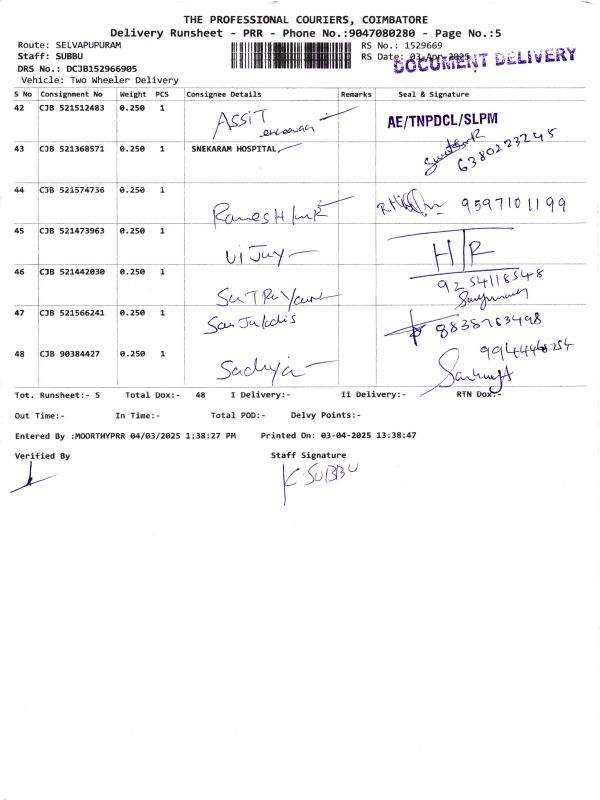 THE PROFESSIONAL COURIERS, COIMBATORE
Delivery Runsheet - PRR - Phone No.:9047080280 - Page No.:5
Route: SELVAPUPURAM
RS No.: 1529669
Staff: SUBBU
RS Date: 03-Apr-2025
DOCUMENT DELIVERY
DRS No.: DCJB152966905
Vehicle: Two Wheeler Delivery
S No Consignment No Weight PCS Consignee Details Remarks Seal & Signature
42 CJB 521512483 0.250 1 ASSIT AE/TNPDCL/SLPM
43 CJB 521368571 0.250 1 SNEKARAM HOSPITAL, 6380223245
44 CJB 521574736 0.250 1 9597101199
45 CJB 521473963 0.250 1 ViJay H/R
46 CJB 521442030 0.250 1 9254118548
47 CJB 521566241 0.250 1 8838763498
48 CJB 90384427 0.250 1
Tot. Runsheet:- 5 Total Dox:- 48 I Delivery:- II Delivery:- RTN Dox:-
Out Time:- In Time:- Total POD:- Delvy Points:-
Entered By :MOORTHYPRR 04/03/2025 1:38:27 PM Printed On: 03-04-2025 13:38:47
Verified By Staff Signature
K. SUBBU